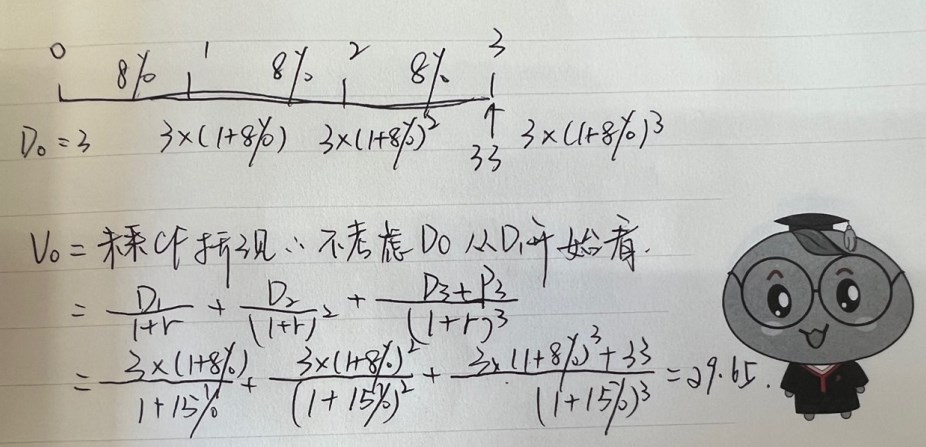 0 1 2 3
8% 8% 8%
D₀ = 3 3×(1+8%) 3×(1+8%)² ↑ 3×(1+8%)³
33
V₀ = 未来CF折现 ∴ 不考虑D₀ 从D₁开始看.
= D₁/(1+r) + D₂/(1+r)² + (D₃+P₃)/(1+r)³
= 3×(1+8%)/(1+15%) + 3×(1+8%)²/(1+15%)² + (3×(1+8%)³+33)/(1+15%)³ = 29.65.